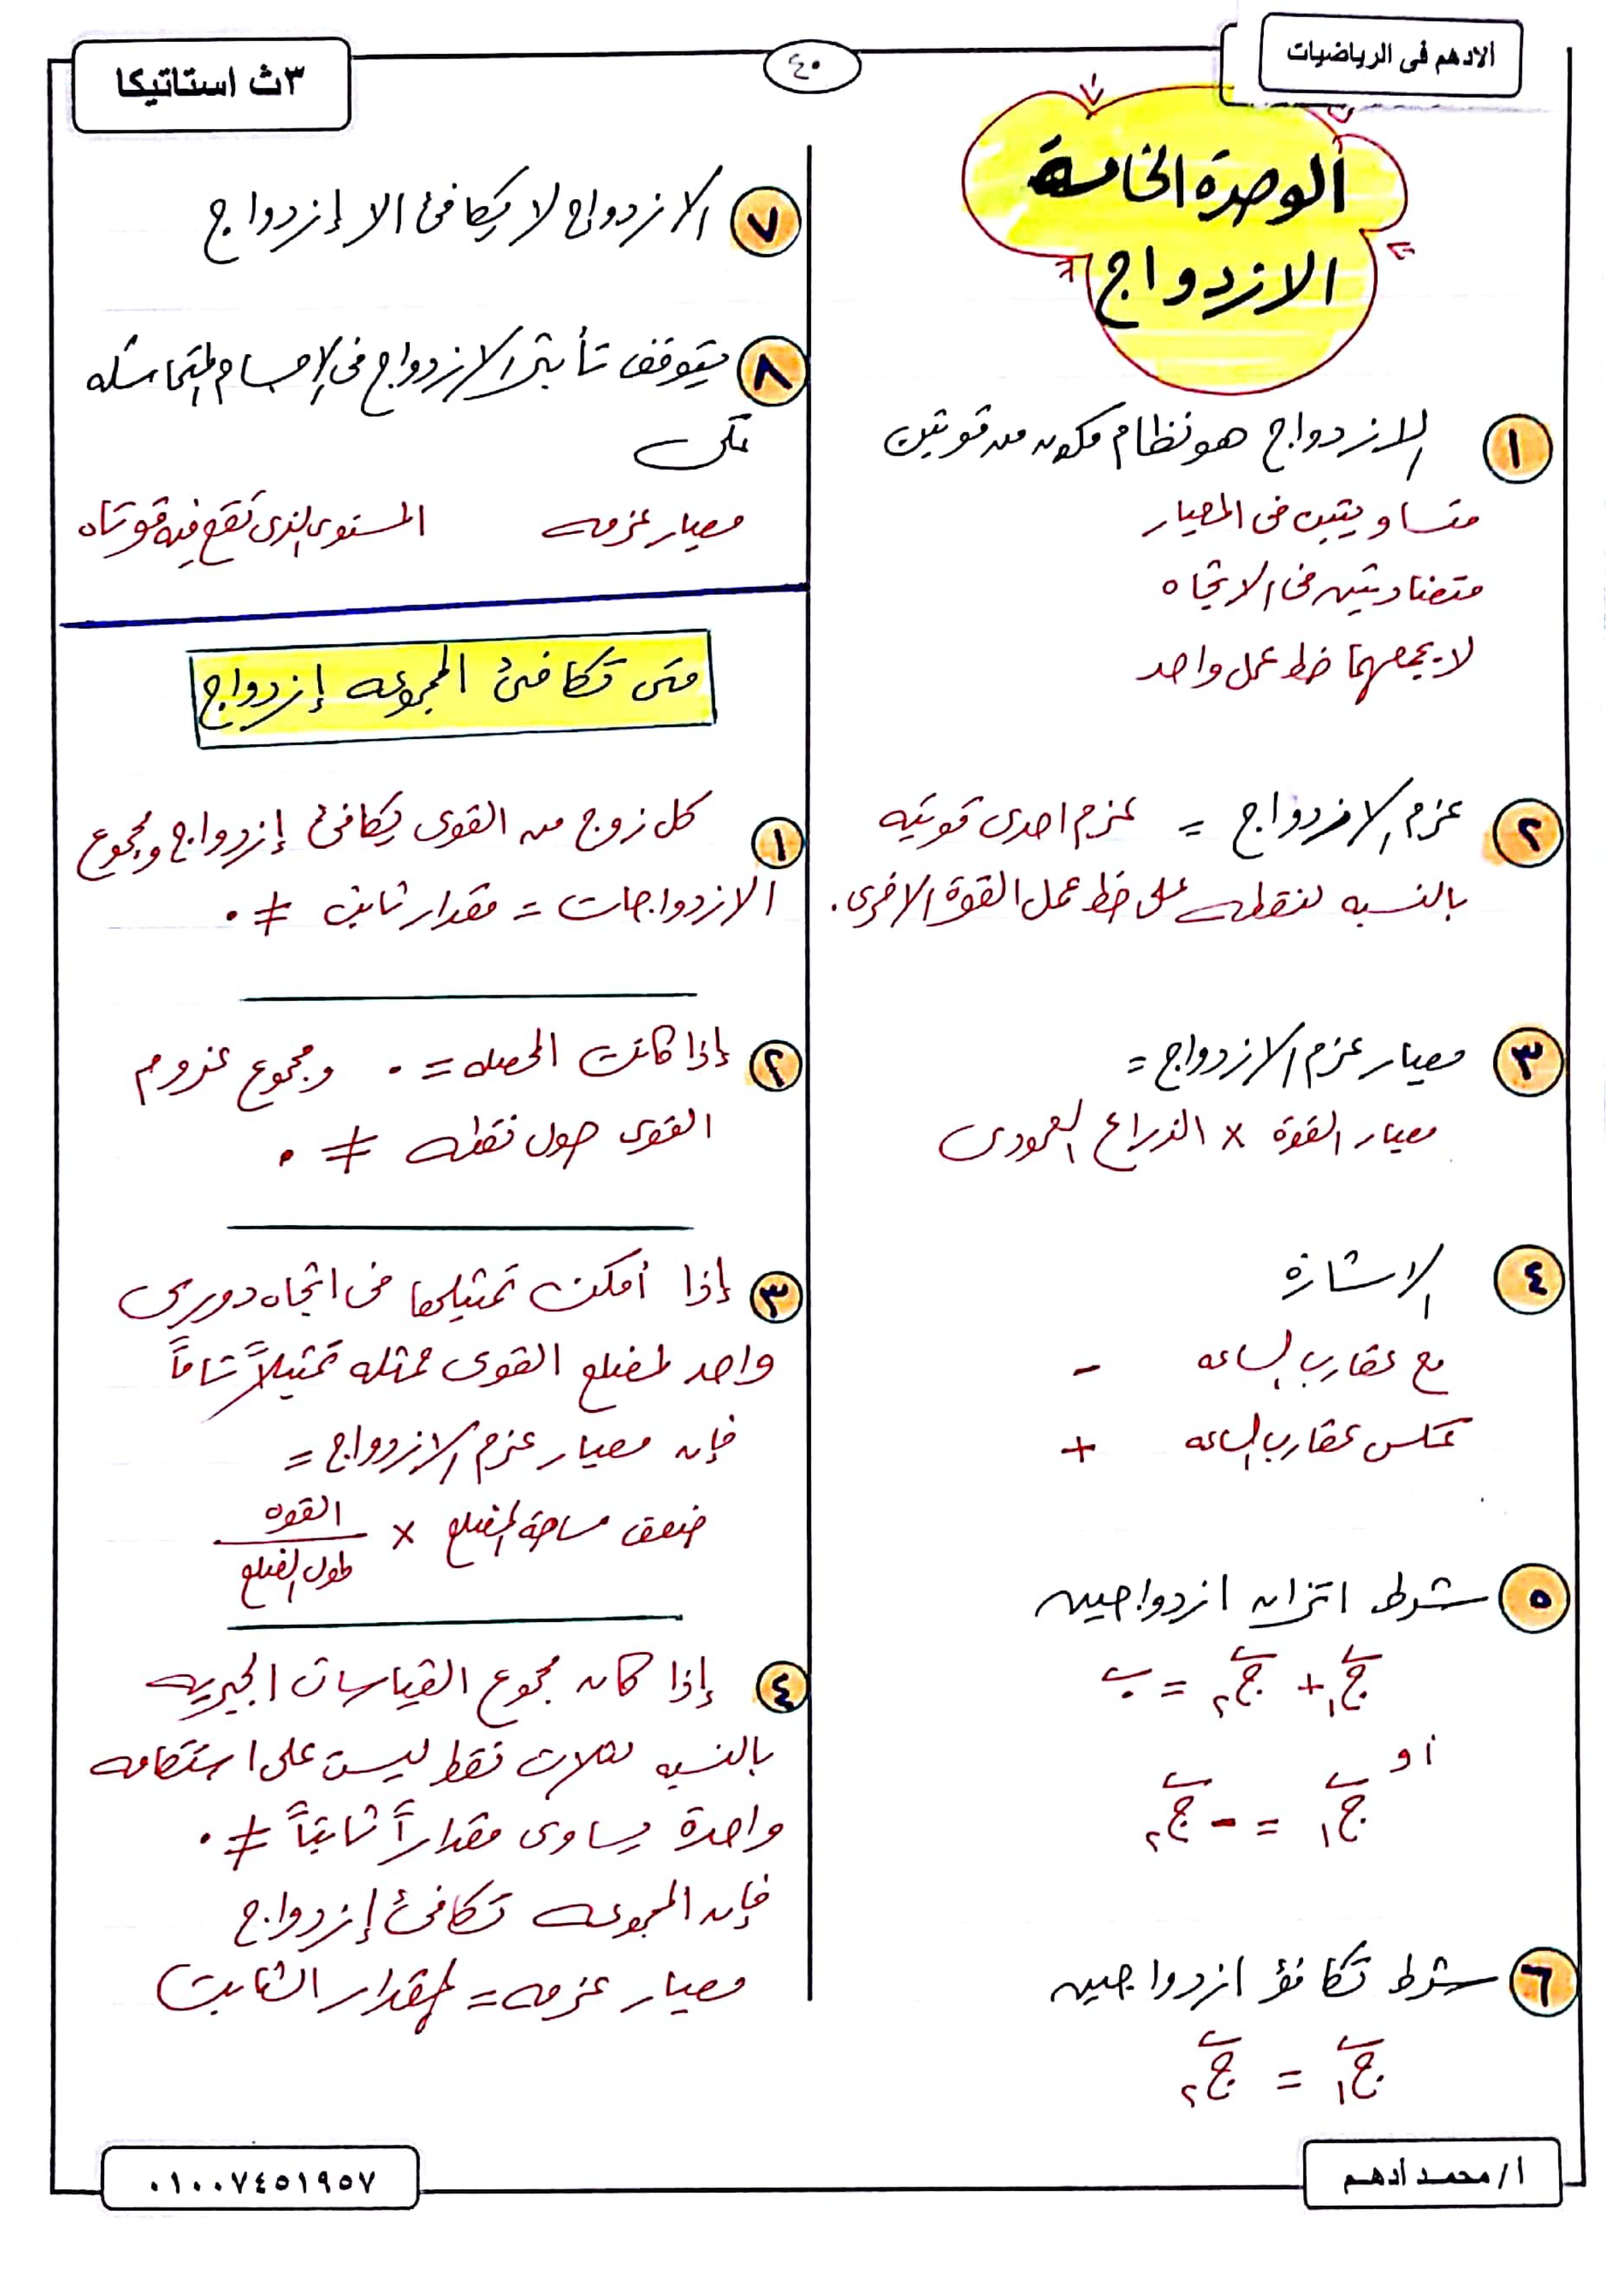 الادهم فى الرياضيات
٤٠
٣ث استاتيكا
الوحدة الخامسة
الازدواج
١ الازدواج هو نظام مكون من قوتين
متساويتين فى المعيار
متضادتين فى الاتجاه
لا يجمعهما خط عمل واحد
٢ عزم الازدواج = عزم احدى قوتيه
بالنسبه لنقطه على خط عمل القوة الاخرى.
٣ معيار عزم الازدواج =
معيار القوة × الذراع العمودى
٤ الاشارة
مع عقارب الساعه -
عكس عقارب الساعه +
٥ شرط اتزان ازدواجين
ج١ + ج٢ = ٠
او
ج١ = - ج٢
٦ شرط تكافؤ ازدواجين
ج١ = ج٢
٧ الازدواج لا يكافئ الا إزدواج
٨ يتوقف تأثير الازدواج فى الاجسام المتماسكه
على
معيار عزمه المستوى الذى تقع فيه قوتاه
متى تكافئ المجموعه إزدواج
١ كل زوج من القوى يكافئ إزدواج ومجموع
الازدواجات = مقدار ثابت ≠ ٠
٢ إذا كانت المحصله = ٠ ومجموع عزوم
القوى حول نقطه ≠ ٠
٣ إذا أمكن تمثيلها فى اتجاه دورى
واحد لمضلع القوى ممثله تمثيلاً تاماً
فإن معيار عزم الازدواج =
ضعف مساحة المضلع × القوه / طول الضلع
٤ إذا كان مجموع القياسات الجبريه
بالنسبه لثلاث نقط ليست على استقامه
واحدة يساوى مقداراً ثابتاً ≠ ٠
فإن المجموعه تكافئ إزدواج
معيار عزمه = المقدار الثابت
أ/ محمد أدهم
٠١٠٠٧٤٥١٩٥٧